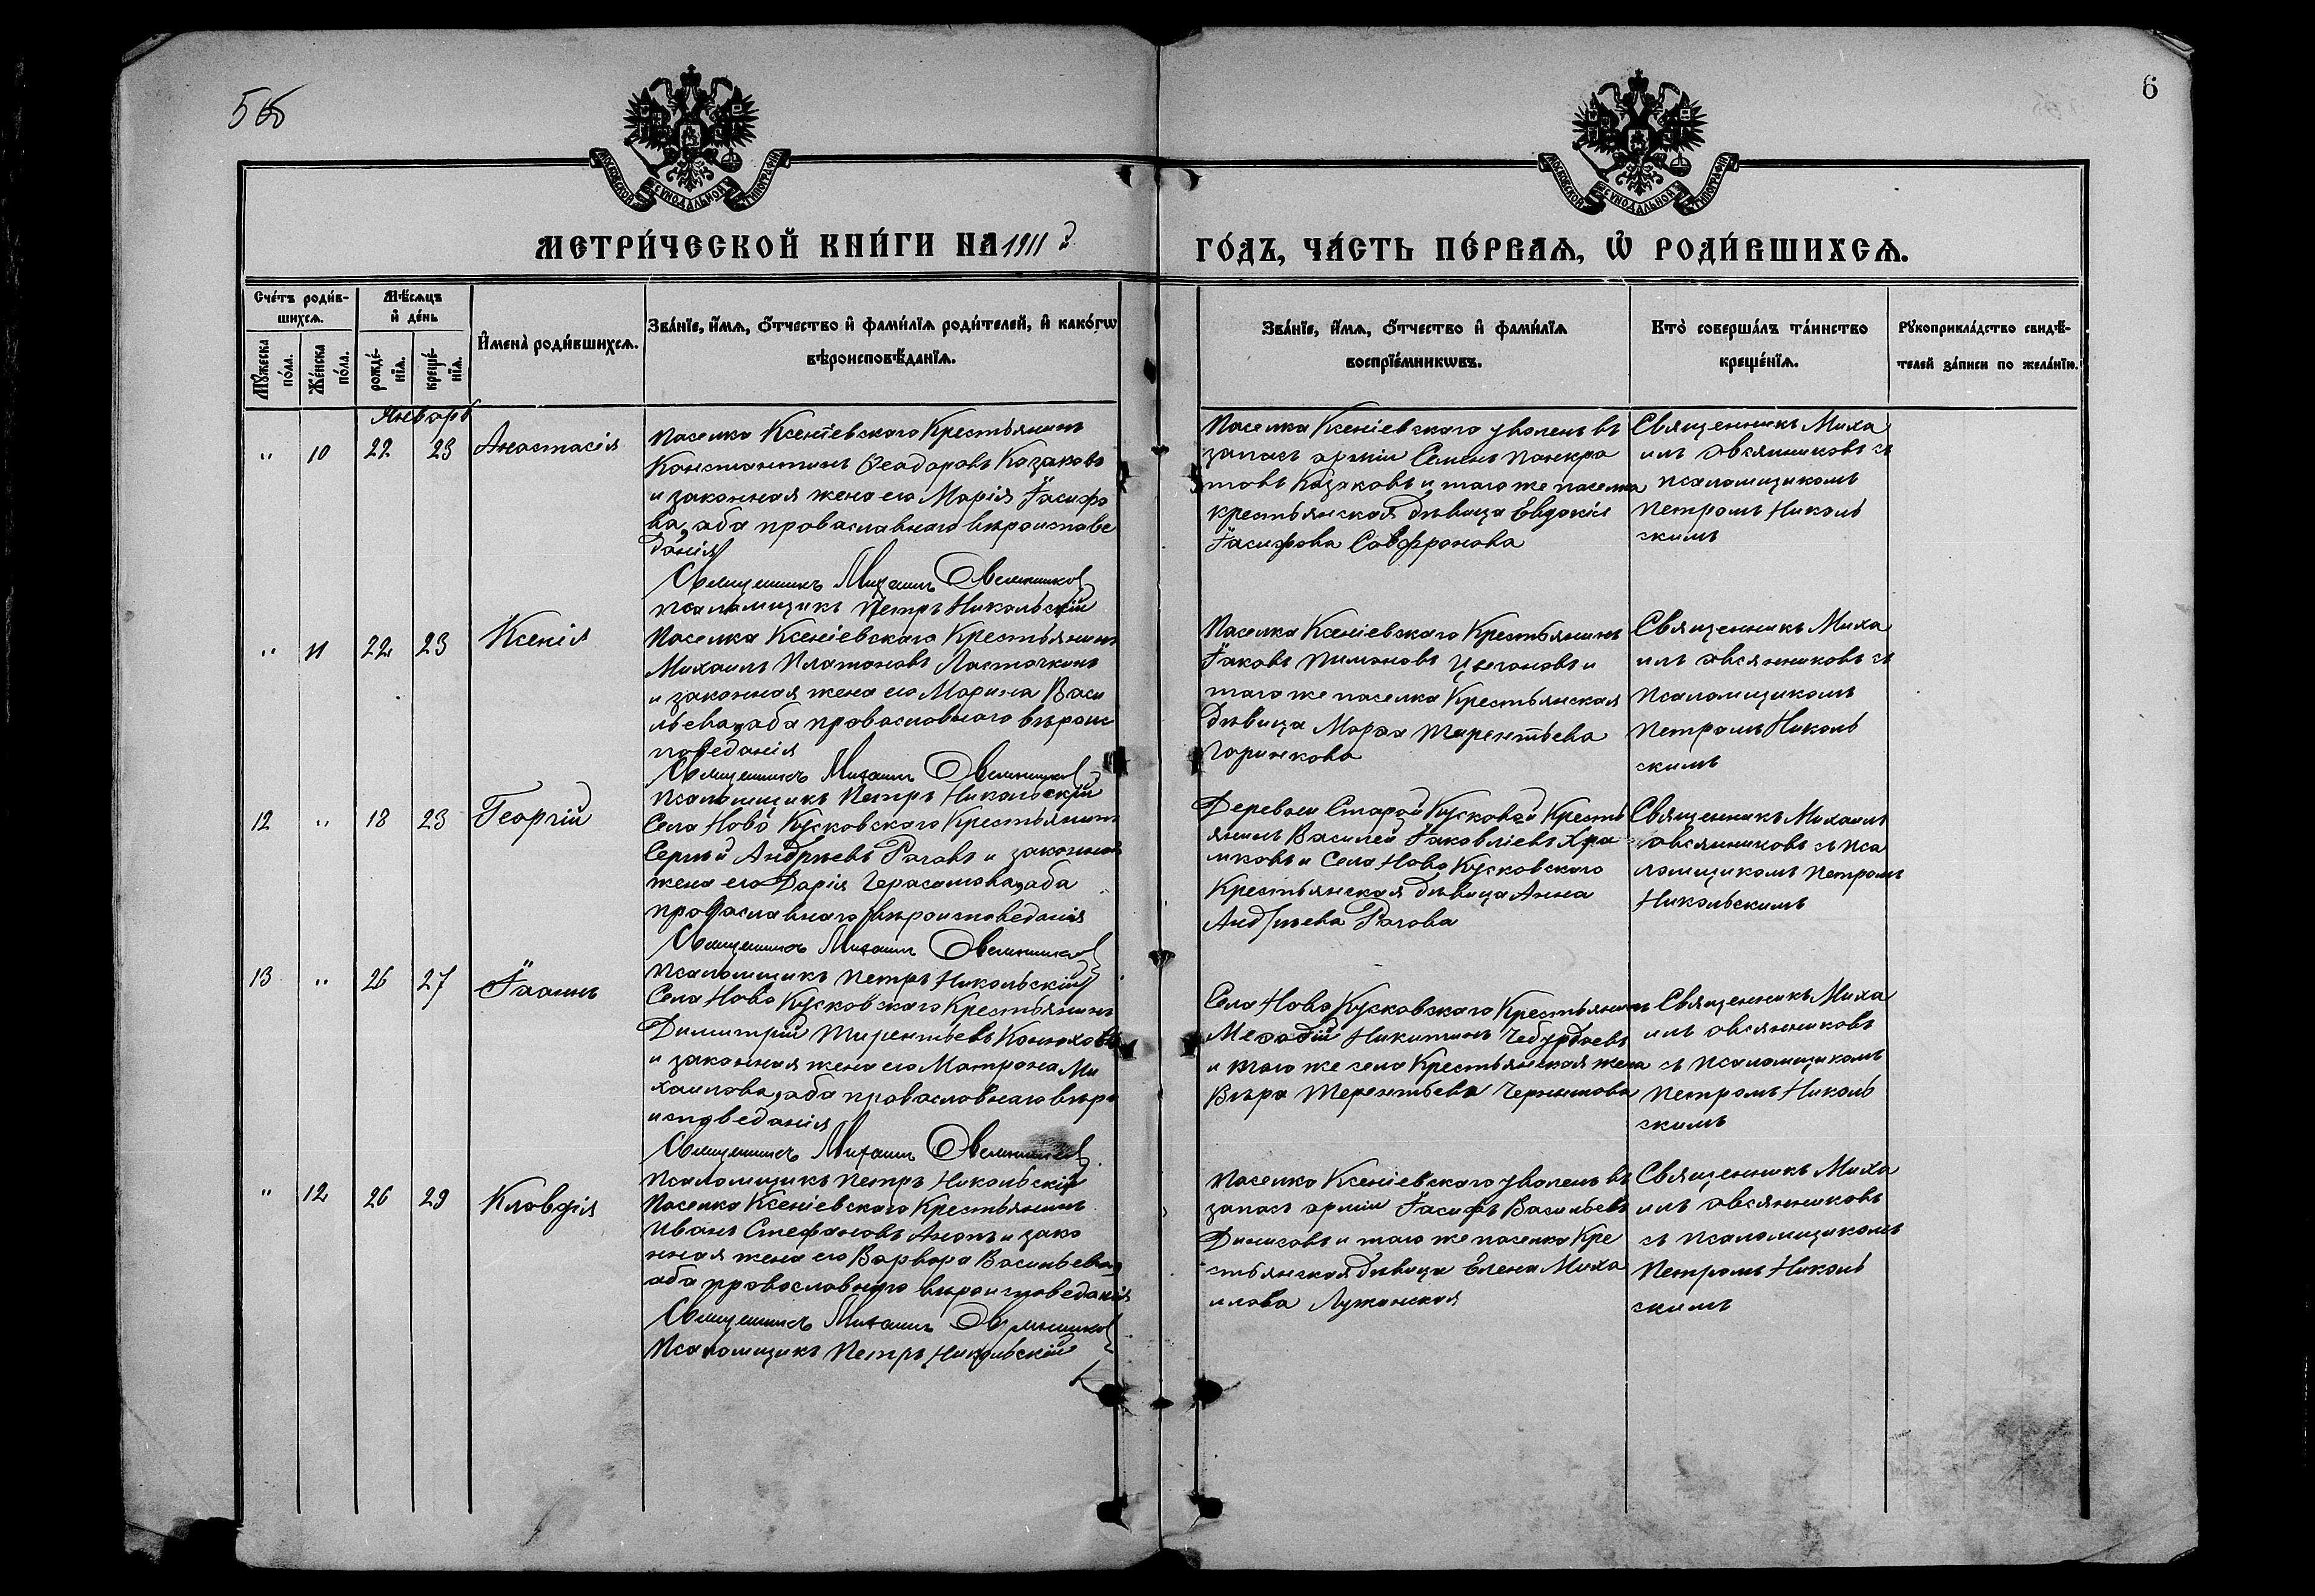 5об
6
МОСКОВСКОЙ СѴНОДАЛЬНОЙ ТИПОГРАФІИ
МОСКОВСКОЙ СѴНОДАЛЬНОЙ ТИПОГРАФІИ
МЕТРИ́ЧЕСКОЙ КНИ́ГИ НА 1911й
ГО́ДЪ, ЧА́СТЬ ПЕ́РВАѦ, Ѡ҆ РОДИ́ВШИХСѦ.
Сче́тъ роди́в-
шихсѧ.
Мꙋ́жеска по́ла.
Же́нска по́ла.
Мѣ́сѧцъ
и҆ де́нь
рожде́-
нїѧ.
креще́-
нїѧ.
И҆мена̀ роди́вшихсѧ.
Зва́нїе, и҆́мѧ, ѻ҆́тчество и҆ фами́лїѧ роди́телей, и҆ како́гѡ
вѣроисповѣ́данїѧ.
Зва́нїе, и҆́мѧ, ѻ҆́тчество и҆ фами́лїѧ
воспрїе́мникѡвъ.
Кто̀ соверша́лъ та́инство
креще́нїѧ.
Рꙋкоприкла́дство свидѣ́-
телей за́писи по жела́нїю.
Январь
" 10 22 23 Анастасія
Поселка Ксеніевскаго Крестьянинъ
Константинъ Ѳеодоровъ Козаковъ
и законная жена его Марія Іосифо
ва, оба православнаго вѣроисповѣ
данія
Священникъ Михаилъ Овсянниковъ
псаломщикъ Петръ Никольскій
Поселка Ксеніевскаго уволенъ въ
запасъ арміи Семенъ Панкра
товъ Козаковъ и того же поселка
крестьянская дѣвица Евдокія
Іосифова Софронова
Священникъ Миха
илъ Овсянниковъ съ
псаломщикомъ
Петромъ Николь
скимъ
" 11 22 23 Ксенія
Поселка Ксеніевскаго Крестьянинъ
Михаилъ Платоновъ Ласточкинъ
и законная жена его Марина Васи
льева, оба православнаго вѣроис
поведанія
Священникъ Михаилъ Овсянниковъ
Псаломщикъ Петръ Никольскій
Поселка Ксеніевскаго Крестьянинъ
Іаковъ Пимоновъ Цыгановъ и
того же поселка Крестьянская
дѣвица Марѳа Тирентьева
Горинкова
Священникъ Миха
илъ Овсянниковъ съ
Псаломщикомъ
Петромъ Николь
скимъ
12 " 18 23 Георгій
Села Ново Кусковскаго Крестьянинъ
Сергѣй Андрѣевъ Роговъ и законная
жена его Дарія Герасимова, оба
православнаго вѣроисповеданія
Священникъ Михаилъ Овсянниковъ
Псаломщикъ Петръ Никольскій
Деревни Старой Кусковой Кресть
янинъ Василей Іаковлевъ Хра
мковъ и Села Ново Кусковскаго
Крестьянская дѣвица Анна
Андрѣева Рогова
Священникъ Михаилъ
Овсянниковъ съ Пса
ломщикомъ Петромъ
Никольскимъ
13 " 26 27 Іоаннъ
Села Ново Кусковскаго Крестьянинъ
Димитрій Тирентьевъ Конюховъ
и законная жена его Матрона Ми
хаилова, оба православнаго вѣро
исповеданія
Священникъ Михаилъ Овсянниковъ
Псаломщикъ Петръ Никольскій
Села Ново Кусковскаго Крестьянинъ
Меѳодій Никитинъ Чебурдаевъ
и того же села Крестьянская жена
Вѣра Терентьева Чернышова
Священникъ Миха
илъ Овсянниковъ
съ Псаломщикомъ
Петромъ Николь
скимъ
" 12 26 29 Клавдія
Поселка Ксеніевскаго Крестьянинъ
Иванъ Стефановъ и зако
нная жена его Варвара Васильева,
оба православнаго вѣроисповеданія
Священникъ Михаилъ Овсянниковъ
Псаломщикъ Петръ Никольскій
Поселка Ксеніевскаго уволенъ въ
запасъ арміи Іосифъ Васильевъ
Денисовъ и того же поселка Кре
стьянская дѣвица Елена Миха
илова Лужинская
Священникъ Миха
илъ Овсянниковъ
съ Псаломщикомъ
Петромъ Николь
скимъ